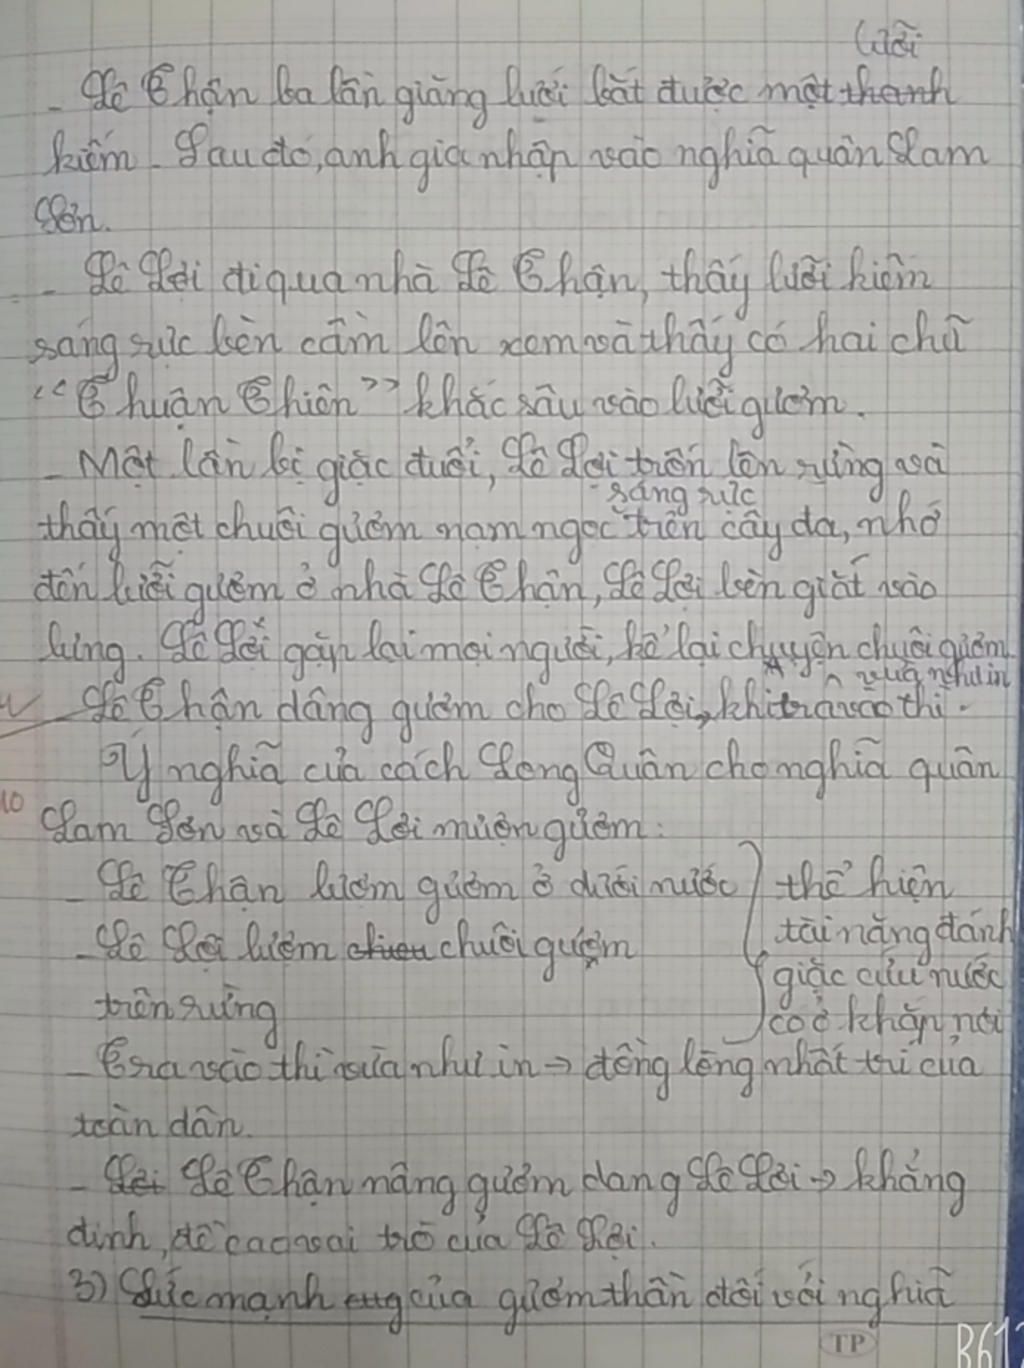 lưỡi
- Lê Thận ba lần giăng lưới bắt được một thanh
kiếm. Sau đó, anh gia nhập vào nghĩa quân Lam
Sơn.
- Lê Lợi đi qua nhà Lê Thận, thấy lưỡi kiếm
sáng rực bèn cầm lên xem và thấy có hai chữ
"Thuận Thiên" khắc sâu vào lưỡi gươm.
- Một lần bị giặc đuổi, Lê Lợi trốn lên rừng và
sáng rực
thấy một chuôi gươm nạm ngọc trên cây đa, nhớ
đến lưỡi gươm ở nhà Lê Thận, Lê Lợi bèn giắt vào
lưng. Lê Lợi gặp lại mọi người, kể lại chuyện chuôi gươm.
vừa như in
- Lê Thận dâng gươm cho Lê Lợi, khi tra vào thì.
Ý nghĩa của cách Long Quân cho nghĩa quân
10
Lam Sơn và Lê Lợi mượn gươm:
- Lê Thận lượm gươm ở dưới nước
- Lê Lợi lượm chuôi gươm
trên rừng
thể hiện
tài năng đánh
giặc cứu nước
có ở khắp nơi
- Tra vào thì vừa như in → đồng lòng nhất trí của
toàn dân.
- Lê Thận nâng gươm dang Lê Lợi → khẳng
định, đề cao vai trò của Lê Lợi.
3) Sức mạnh của gươm thần đối với nghĩa
TP
B612